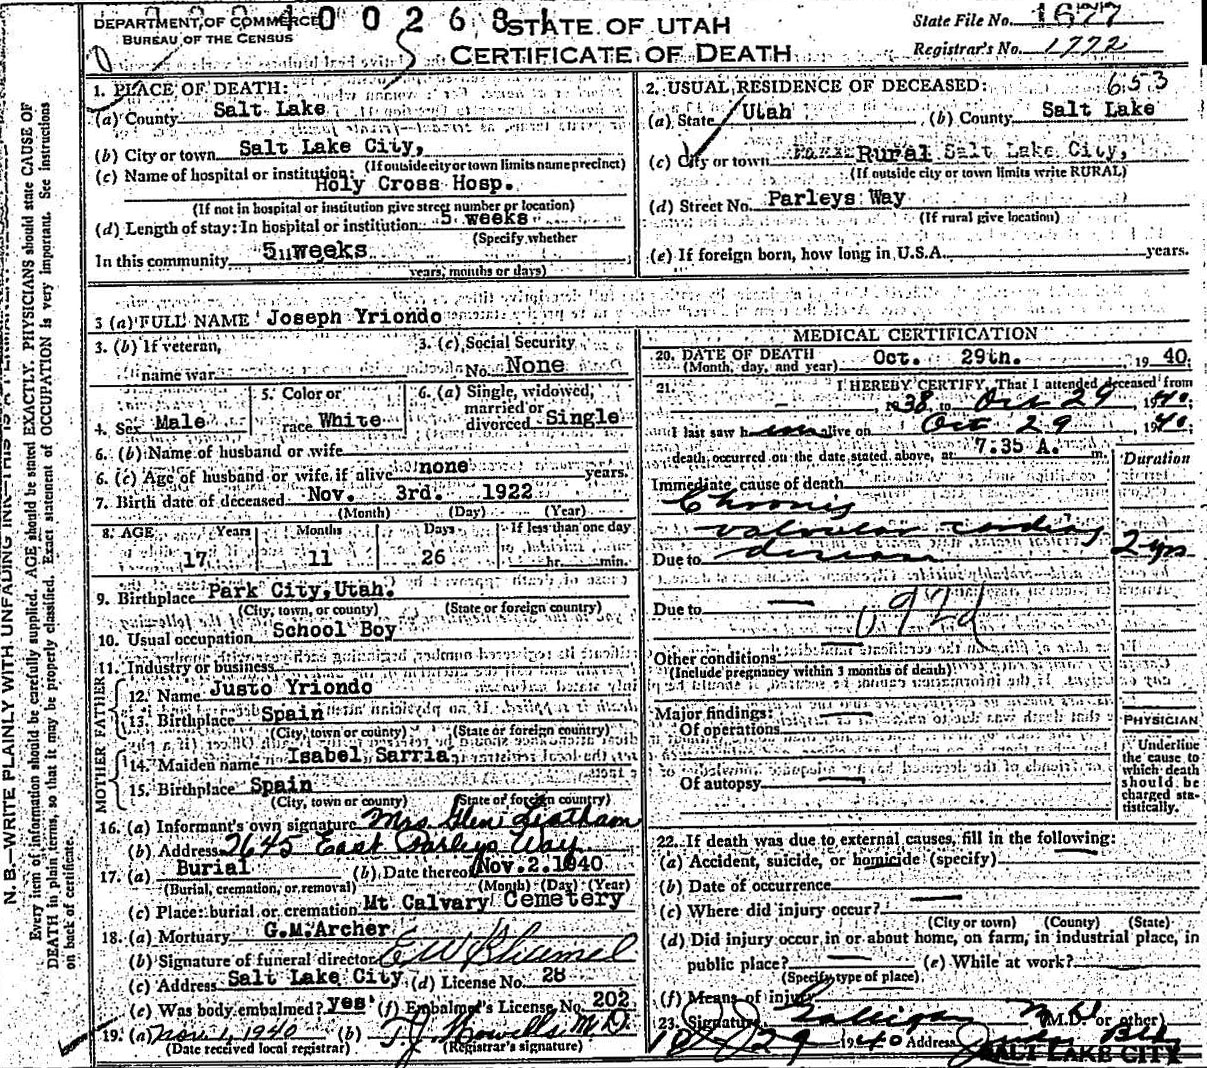 DEPARTMENT OF COMMERCE
BUREAU OF THE CENSUS
STATE OF UTAH
CERTIFICATE OF DEATH
State File No. 1677
Registrar's No. 1772
N. B.—WRITE PLAINLY WITH UNFADING INK—THIS IS A PERMANENT
Every item of information should be carefully supplied. AGE should be stated EXACTLY. PHYSICIANS should state CAUSE OF
DEATH in plain terms, so that it may be properly classified. Exact statement of OCCUPATION is very important. See instructions
on back of certificate.
1. PLACE OF DEATH:
(a) County Salt Lake
(b) City or town Salt Lake City,
(If outside city or town limits name precinct)
(c) Name of hospital or institution:
Holy Cross Hosp.
(If not in hospital or institution give street number or location)
(d) Length of stay: In hospital or institution 5 weeks
(Specify whether
In this community 5 weeks
years, months or days)
2. USUAL RESIDENCE OF DECEASED: 653
(a) State Utah (b) County Salt Lake
(c) City or town Rural Salt Lake City,
(If outside city or town limits write RURAL)
(d) Street No. Parleys Way
(If rural give location)
(e) If foreign born, how long in U.S.A. years.
3 (a) FULL NAME Joseph Yriondo
3. (b) If veteran,
name war
3. (c) Social Security
No. None
4. Sex Male
5. Color or
race White
6. (a) Single, widowed,
married or
divorced Single
6. (b) Name of husband or wife
6. (c) Age of husband or wife if alive none years.
7. Birth date of deceased Nov. 3rd. 1922
(Month) (Day) (Year)
8. AGE Years Months Days If less than one day
17 11 26 hr. min.
9. Birthplace Park City, Utah.
(City, town, or county) (State or foreign country)
10. Usual occupation School Boy
11. Industry or business
FATHER
12. Name Justo Yriondo
13. Birthplace Spain
(City, town or county) (State or foreign country)
MOTHER
14. Maiden name Isabel Sarria
15. Birthplace Spain
(City, town or county) (State or foreign country)
16. (a) Informant's own signature Mrs Glen Leatham
(b) Address 2645 East Parleys Way
17. (a) Burial (b) Date thereof Nov. 2. 1940
(Burial, cremation, or removal) (Month) (Day) (Year)
(c) Place: burial or cremation Mt Calvary Cemetery
18. (a) Mortuary G.M. Archer
(b) Signature of funeral director
(c) Address Salt Lake City (d) License No. 28
(e) Was body embalmed? yes (f) Embalmer's License No. 202
19. (a) Nov. 1, 1940 (b) T J Howells M.D.
(Date received local registrar) (Registrar's signature)
MEDICAL CERTIFICATION
20. DATE OF DEATH Oct. 29th. 19 40
(Month, day, and year)
21. I HEREBY CERTIFY, That I attended deceased from
1938 to Oct 29 1940;
I last saw him alive on Oct 29 1940;
death occurred on the date stated above, at 7.35 A. m.
Duration
Immediate cause of death
Chronic
valvular cardiac 2 yrs
Due to disease
Due to
092d
Other conditions
(Include pregnancy within 3 months of death)
Major findings:
Of operations
Of autopsy
PHYSICIAN
Underline
the cause to
which death
should be
charged sta-
tistically.
22. If death was due to external causes, fill in the following:
(a) Accident, suicide, or homicide (specify)
(b) Date of occurrence
(c) Where did injury occur?
(City or town) (County) (State)
(d) Did injury occur in or about home, on farm, in industrial place, in
public place? (e) While at work?
(Specify type of place)
(f) Means of injury
23. Signature Galligan M.D. (M.D. or other)
10/29 1940 Address Judge Bld
SALT LAKE CITY